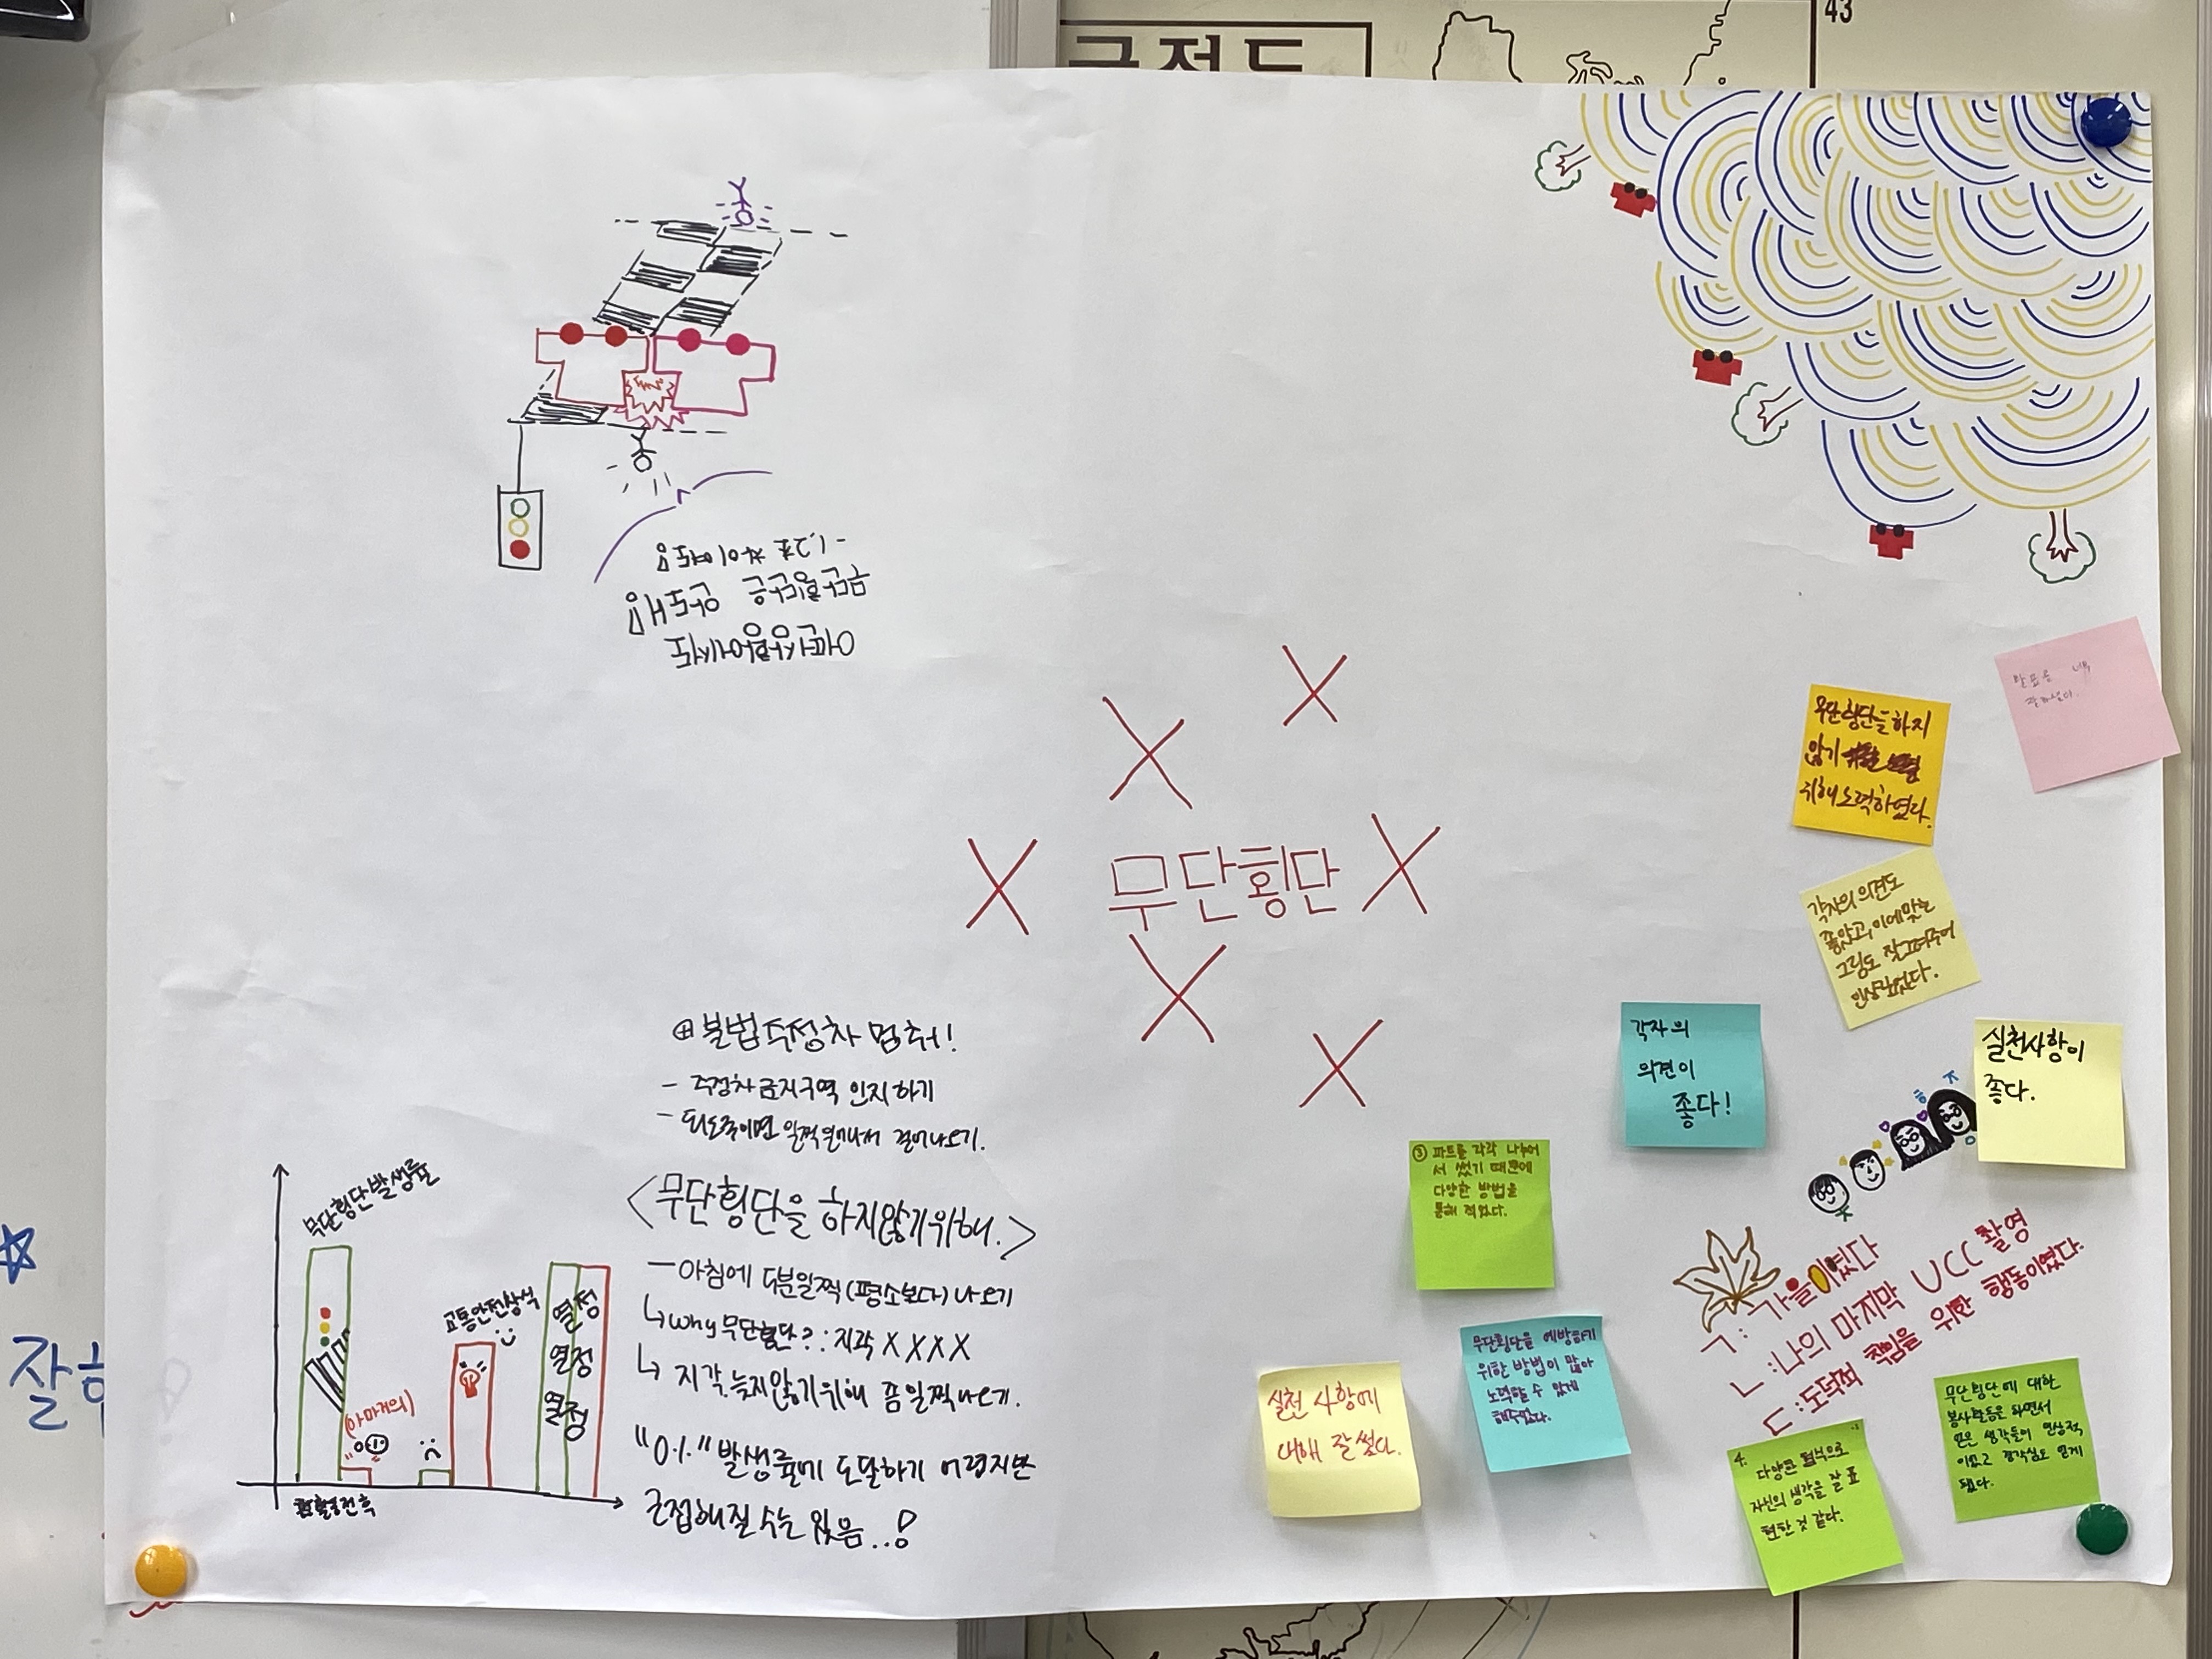 43
무단횡단
⊕ 불법주정차 멈춰!
- 주정차금지구역 인지하기
- 되도록이면 일찍일어나서 걸어나오기.
<무단횡단을 하지않기위해.>
- 아침에 5분일찍(평소보다) 나오기
↳ why 무단횡단? : 지각 XXXX
↳ 지각, 늦지않기위해 좀 일찍나오기.
"0%" 발생률에 도달하기 어렵지만
근접해질 수는 있음..!
무단횡단발생률
(아마거의)
교통안전상식
열정
열정
열정
활동전후
잘하
무단횡단을하지
않기
위해노력하였다.
각자의 의견도
좋았고, 이에맞는
그림도 잘그려주어
인상깊었다.
각자의
의견이
좋다!
실천사항이
좋다.
③ 파트를 각각 나누어
서 썼기 때문에
다양한 방법을
통해 적었다.
ㄱ: 가을이였다
ㄴ: 나의 마지막 UCC 촬영
ㄷ: 도덕적 책임을 위한 행동이였다.
실천 사항에
대해 잘 썼다.
무단횡단을 예방하기
위한 방법이 많아
노력할 수 있게
해주었다.
4. 다양한 형식으로
자신의 생각을 잘 표
현한 것 같다.
무단횡단에 대한
봉사활동을 하면서
얻은 생각들이 인상적
이었고 경각심도 얻게
됐다.